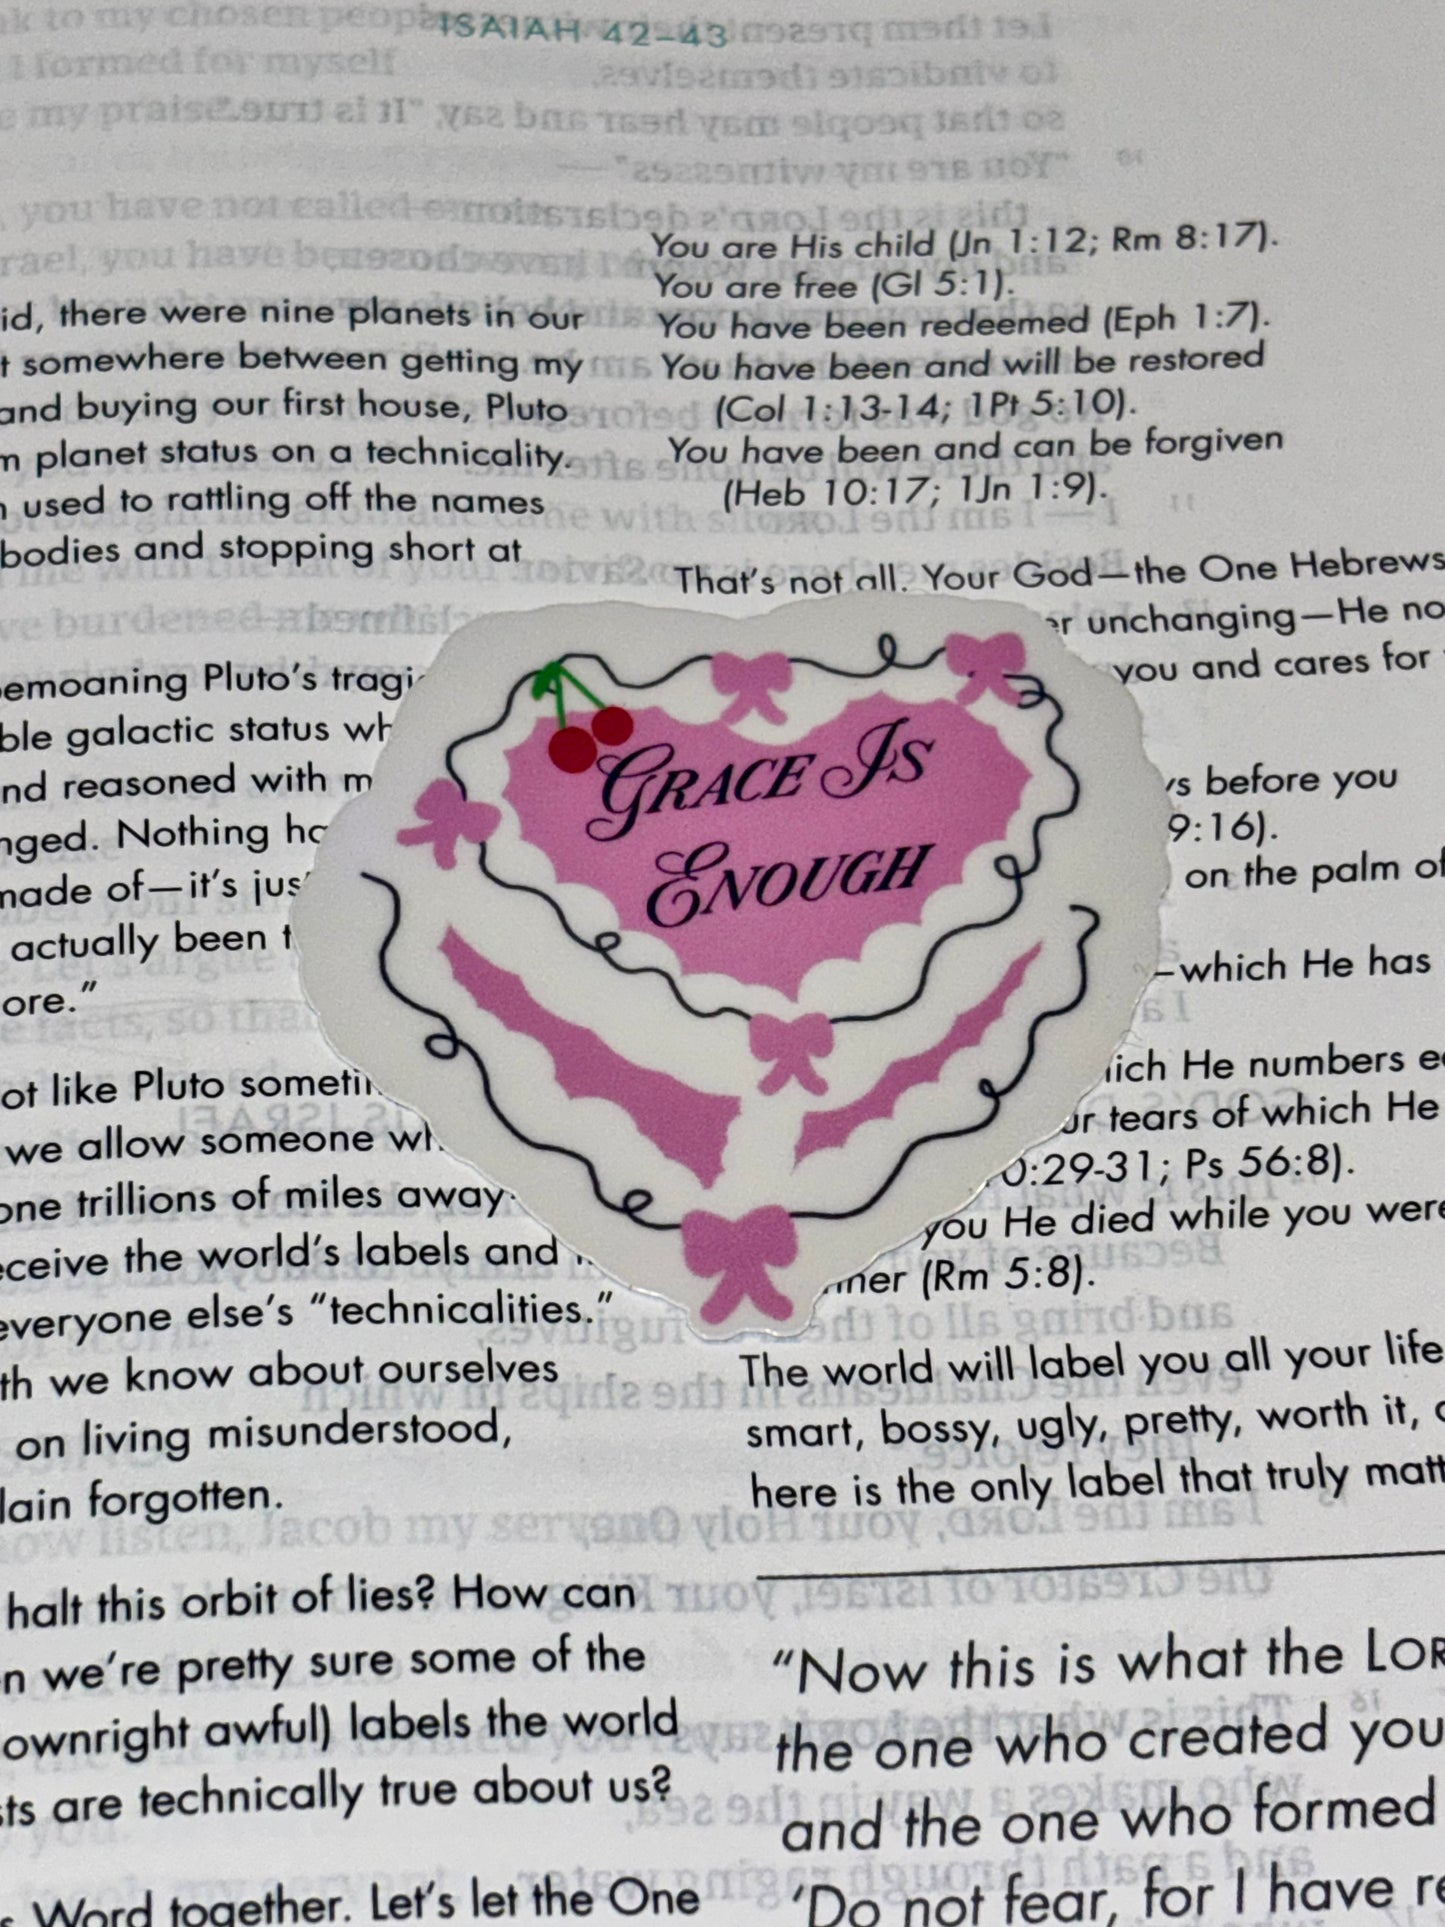 ISAIAH 42–43
id, there were nine planets in our
t somewhere between getting my
and buying our first house, Pluto
m planet status on a technicality.
n used to rattling off the names
bodies and stopping short at
emoaning Pluto's tragi
ble galactic status wh
nd reasoned with m
nged. Nothing ha
made of—it's jus
actually been t
ore."
ot like Pluto someti
we allow someone wh
one trillions of miles away
eceive the world's labels and
everyone else's "technicalities."
th we know about ourselves
on living misunderstood,
lain forgotten.
halt this orbit of lies? How can
n we're pretty sure some of the
ownright awful) labels the world
sts are technically true about us?
Word together. Let's let the One
You are His child (Jn 1:12; Rm 8:17).
You are free (Gl 5:1).
You have been redeemed (Eph 1:7).
You have been and will be restored
(Col 1:13-14; 1Pt 5:10).
You have been and can be forgiven
(Heb 10:17; 1Jn 1:9).
That's not all. Your God—the One Hebrews
er unchanging—He no
you and cares for
s before you
9:16).
on the palm of
—which He has
ich He numbers e
ur tears of which He
0:29-31; Ps 56:8).
you He died while you were
ner (Rm 5:8).
The world will label you all your life
smart, bossy, ugly, pretty, worth it,
here is the only label that truly matt
"Now this is what the LOR
the one who created you
and the one who formed
'Do not fear, for I have re
GRACE IS
ENOUGH